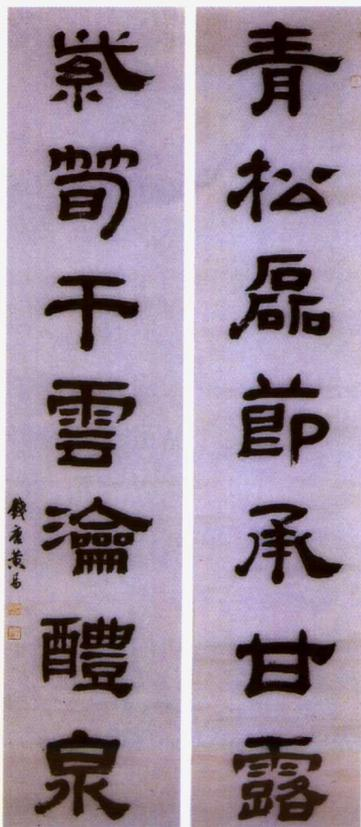 青松磊節承甘露
紫筍干雲瀹醴泉
錢唐黃易